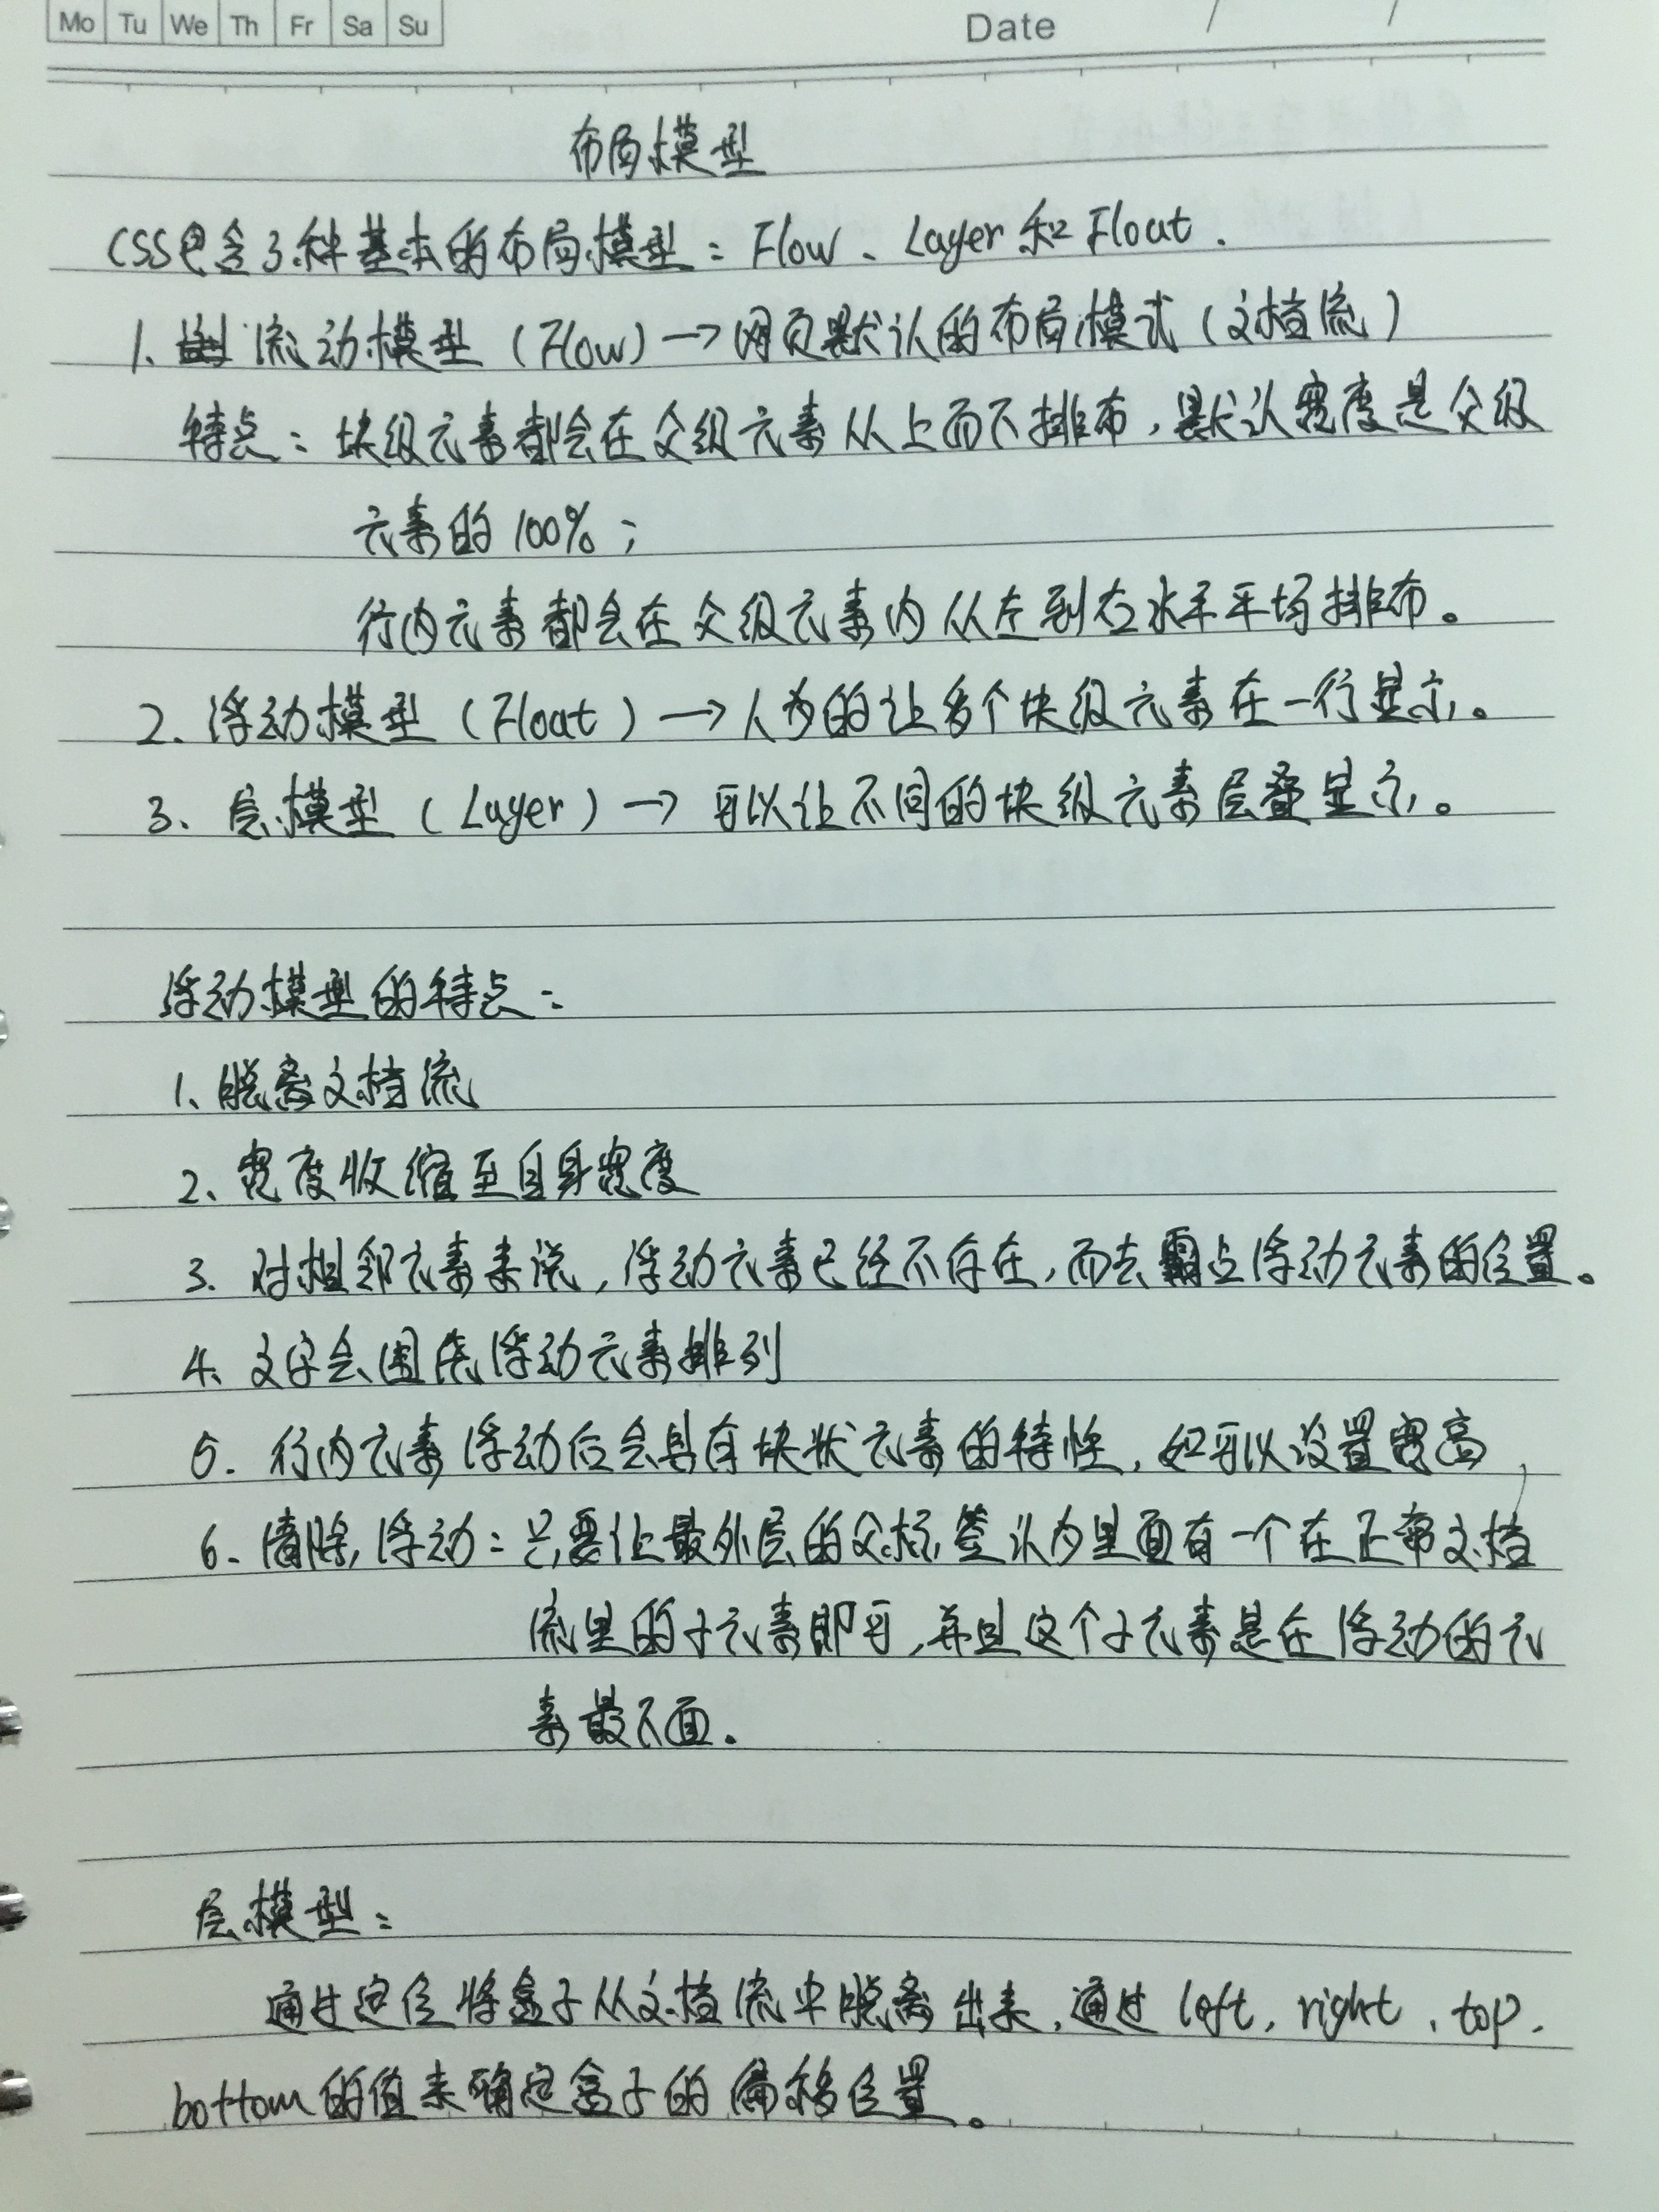 Mo Tu We Th Fr Sa Su Date / /
布局模型
CSS包含3种基本的布局模型：Flow、Layer和Float.
1、流动模型（Flow）→网页默认的布局模式（文档流）
特点：块级元素都会在父级元素从上而下排布，默认宽度是父级
元素的100%；
行内元素都会在父级元素内从左到右水平平均排布。
2、浮动模型（Float）→人为的让多个块级元素在一行显示。
3、层模型（Layer）→可以让不同的块级元素层叠显示。
浮动模型的特点：
1、脱离文档流
2、宽度收缩至自身宽度
3. 对相邻元素来说，浮动元素已经不存在，而去霸占浮动元素的位置。
4、文字会围绕浮动元素排列
5. 行内元素浮动后会具有块状元素的特性，如可以设置宽高，
6、清除浮动：只要让最外层的父标签认为里面有一个在正常文档
流里的子元素即可，并且这个子元素是在浮动的元
素最下面.
层模型：
通过定位将盒子从文档流中脱离出来，通过left，right，top.
bottom的值来确定盒子的偏移位置。